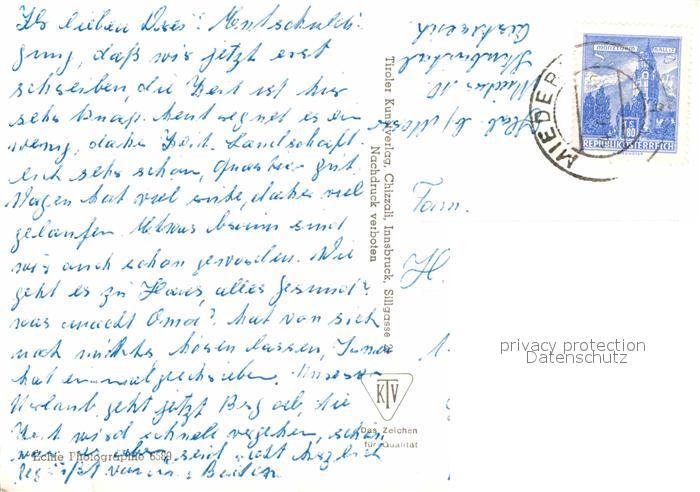 Ihr lieben Drei! Entschuldi-
gung, daß wir jetzt erst
schreiben die Zeit ist hier
sehr knap. heut regnet es ein
wenig, daher Zeit. Landschaft-
lich sehr schön, Quartier gut.
Wagen hat viel ruhe, daher viel
gelaufen. Etwas braun sind
wir auch schon geworden. Wie
geht es zu Haus, alles Gesund?
was macht Oma? hat von sich
noch nichts hören lassen,
hat einmal geschrieben. Unser
Urlaub geht jetzt Berg ab, die
Zeit wird schnell vergehen, schön
war es aber, seid recht herzlich
gegrüßt von
Echte Photographie
Tiroler Kunstverlag, Chizzali, Innsbruck, Sillgasse 21
Nachdruck verboten
KTV
Das Zeichen
für Qualität
Mieders
Stubaital
Österreich
Fam.
H.
MIEDER
REPUBLIK ÖSTERREICH
privacy protection
Datenschutz